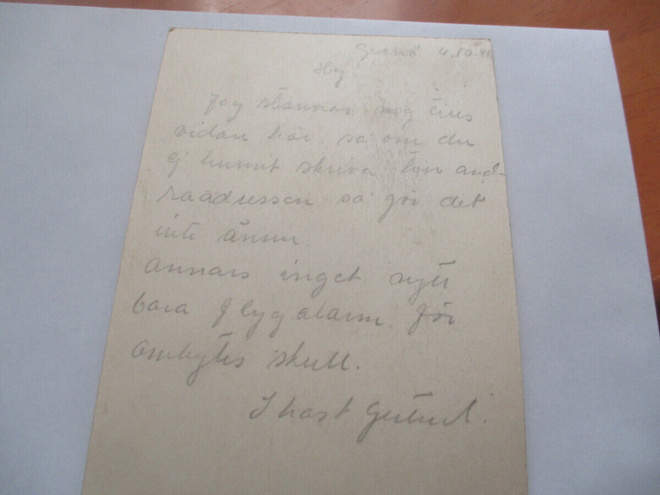 4.10.41
Hej
Jag stannar nog tills
vidare här så om du
ej hunnit skriva den and-
ra adressen så gör det
inte ännu.
Annars inget nytt
bara flygalarm för
ombytes skull.
I hast Gertrud.